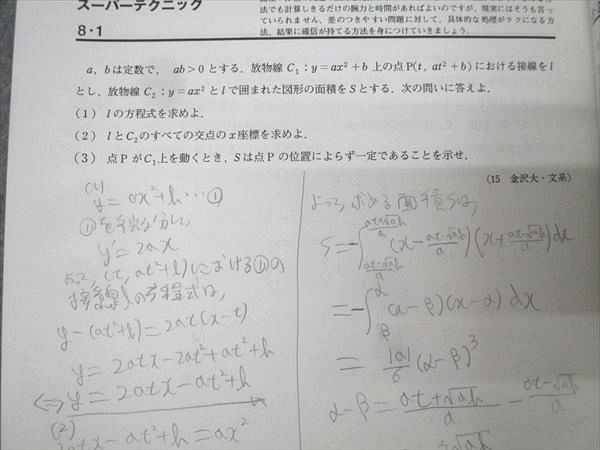 スーパーテクニック
8・1
法でも計算しきるだけの腕力と時間があればよいのですが，現実にはそうも言っ
ていられません．差のつきやすい問題に対して，具体的な処理がラクになる方
法，結果に確信が持てる方法を身につけていきましょう．
a，bは定数で， ab＞0とする．放物線 C₁：y＝ax²＋b 上の点P(t, at²＋b)における接線をl
とし，放物線 C₂：y＝ax²とlで囲まれた図形の面積をSとする．次の問いに答えよ．
（1） lの方程式を求めよ．
（2） lとC₂のすべての交点のx座標を求めよ．
（3） 点PがC₁上を動くとき，Sは点Pの位置によらず一定であることを示せ．
（15 金沢大・文系）
(1)
y=ax²+b…①
①を微分して，
y'=2ax
よって (t, at²+b)における①の
接線lの方程式は，
y-(at²+b)=2at(x-t)
y=2atx-2at²+at²+b
⇔ y=2atx-at²+b
(2)
2atx-at²+b=ax²
よって，求める面積Sは，
S=-∫(x-at-√ab/a)(x+at-√ab/a)dx
=-∫(x-β)(x-α)dx
=|a|/6(α-β)³
α-β=at+√ab/a-at-√ab/a